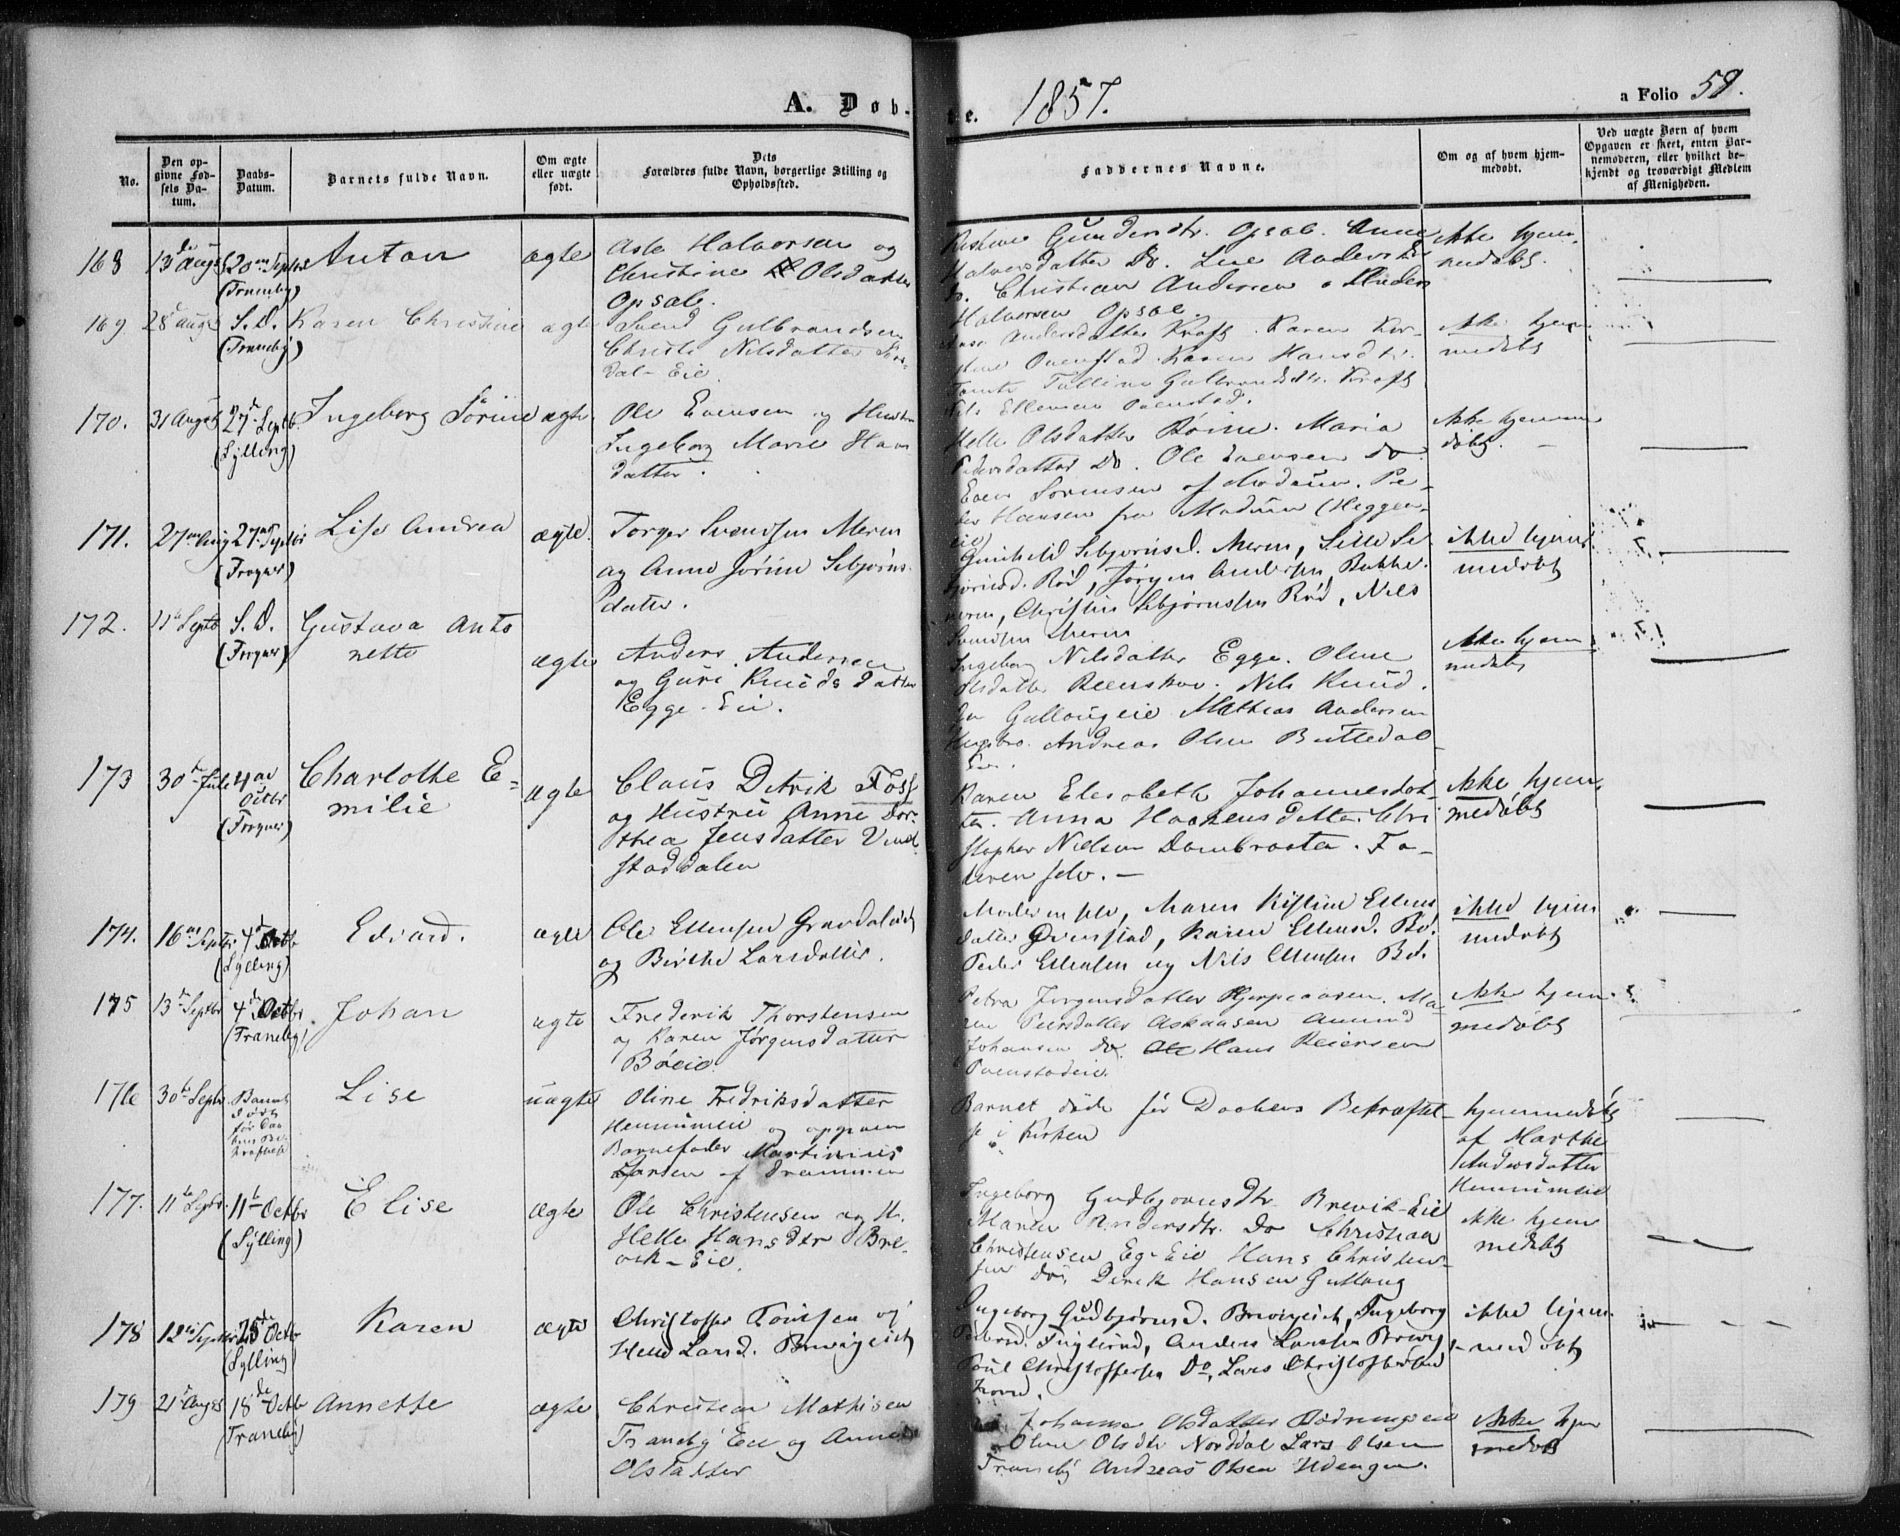 A. Døb-
te. 1857.
a Folio 59.
No.
Den op-
givne Fød-
sels Da-
tum.
Daabs-
Datum.
Barnets fulde Navn.
Om ægte
eller uægte
født.
Dets
Forældres fulde Navn, borgerlige Stilling og
Opholdssted.
Faddernes Navne.
Om og af hvem hjem-
medøbt.
Ved uægte Børn af hvem
Opgaven er skeet, enten Bar-
nemoderen, eller hvilket be-
kjendt og troværdigt Medlem
af Menigheden.
168 13de Augst 20de Septbr
(Traneby)
Anton
ægte
Asle Halvorsen og
Christine Olsdatter
Opsal.
Gundersdtr. Opsal. Anne
Halvorsdatter Do. Lise Andersdtr
Do. Christian Andersen o Anders
Halvorsen Opsal.
Ikke hjem-
medøbt.
169 28 Augst S.D.
(Traneby)
Karen Christine
ægte
Svend Gulbrandsen
Christi Nilsdatter
dal-Eie.
Andersdatter Kraft. Karen
Ovenstad. Karen Hansdtr.
Tomte Gulbrandsdtr. Kraft
Nils Ellensen Ovenstad.
Ikke hjem
medøbt
170. 31 Augst 27de Septb.
(Sylling)
Ingeborg Sørine
ægte
Ole Evensen og Hustru
Ingeborg Marie Hans
datter.
Helle Olsdatter Maria
Pedersdatter Do. Ole Evensen Do
Even Sorensen af Modum. Pe-
der Hansen fra Modum (Heggen-
eie)
Ikke hjemme
døbt.
171. 27de Aug 27de Septbr
(Frogner)
Lise Andrea
ægte.
Torger Svendsen Meren
og Anne Jørine Sebjørns-
datter.
Gunhild Sebjørnsd. Meren, Sille Se
bjørnsd. Rød, Jørgen Andersen Bakke-
meren, Christen Sebjørnsen Rød, Nils
Svendsen Meren
ikke hjem
medøbt
172. 11te Septb S.D.
(Frogner)
Gustava Anto
nette
ægte
Anders Andersen
og Guri Knudsdatter
Egge-Eie.
Ingeborg Nilsdatter Egge. Oline
Olsdatter Reenskov. Nils Knud-
sen Gullaugeie Mathias Andersen
Andreas Olsen Buttedal-
Eie.
Ikke hjem
medøbt
173 30te Juli 4de
Octbr
(Frogner)
Charlotte E-
milie
ægte
Claus Ditrik Foss
og Hustru Anne Dor-
thea Jensdatter Vind-
staddalen
Karen Elisabeth Johannesdat-
ter. Anna Haakensdatter. Chri
stopher Nielsen Dambraaten. Fa-
deren selv.-
Ikke hjem
medøbt
174. 16de Septbr 4de Octb
(Sylling)
Edvard.
ægte
Ole Ellensen Gravdalseiet
og Birthe Larsdatter.
Moderen selv, Maren Kistine Ellens
datter Ovenstad, Karen Ellensd. Bø.
Peder Ellensen og Nils Ellensen Bø.
ikke hjem
medøbt
175 13de Septbr 4de Octbr
(Traneby)
Johan
ægte
Frederik Thorstensen
og Karen Jørgensdatter
Bøeie
Petra Jørgensdatter Hjerpeaasen. Ma-
ren Peersdatter Askaasen Amund
Johansen Do. Ole Hans Reiersen
Ovenstadeie.
Ikke hjem-
medøbt
176 30te Septbr. Barnet
døde
før Daa
bens Be-
kræftelse
Lise
uægte
Oline Fredriksdatter
Hennumeie og opgiven
Barnefader Martinius
Larsen af Drammen
Barnet døde før Daabens Bekræftel-
se i Kirken
hjemmedøbt
af Marthe
Andersdatter
Hennumeie
177. 11te Septbr. 11te Octbr
(Sylling)
Elise
ægte
Ole Christensen og H.
Helle Hansdtr Bre-
vik-Eie.
Ingeborg Gudbjørnsdtr Brevik-Eie
Maren Andersdtr. Do Christian
Christensen Eg-Eie Hans Christen-
sen Do, Dirik Hansen Gullaug
Ikke hjem
medøbt
178 12te Septbr 25de Octbr
(Sylling)
Karen
ægte
Christoffer og
Helle Larsd. Brevigeiet
Ingeborg Gudbjørnsd. Brevigeiet, Ingeborg
Anders Larsen Brevig
Poul Christoffersen Do, Lars Christoffersen
ikke hjem-
medøbt
179 21de Augst 18de Octbr
Traneby
Annette
ægte
Christian Mathisen
Traneby Eie og Anne
Olsdatter
Johanne Olsdatter
Oline Olsdtr Norddal Lars Olsen
Traneby Andreas Olsen Udengen.
Ikke hjem
medøbt